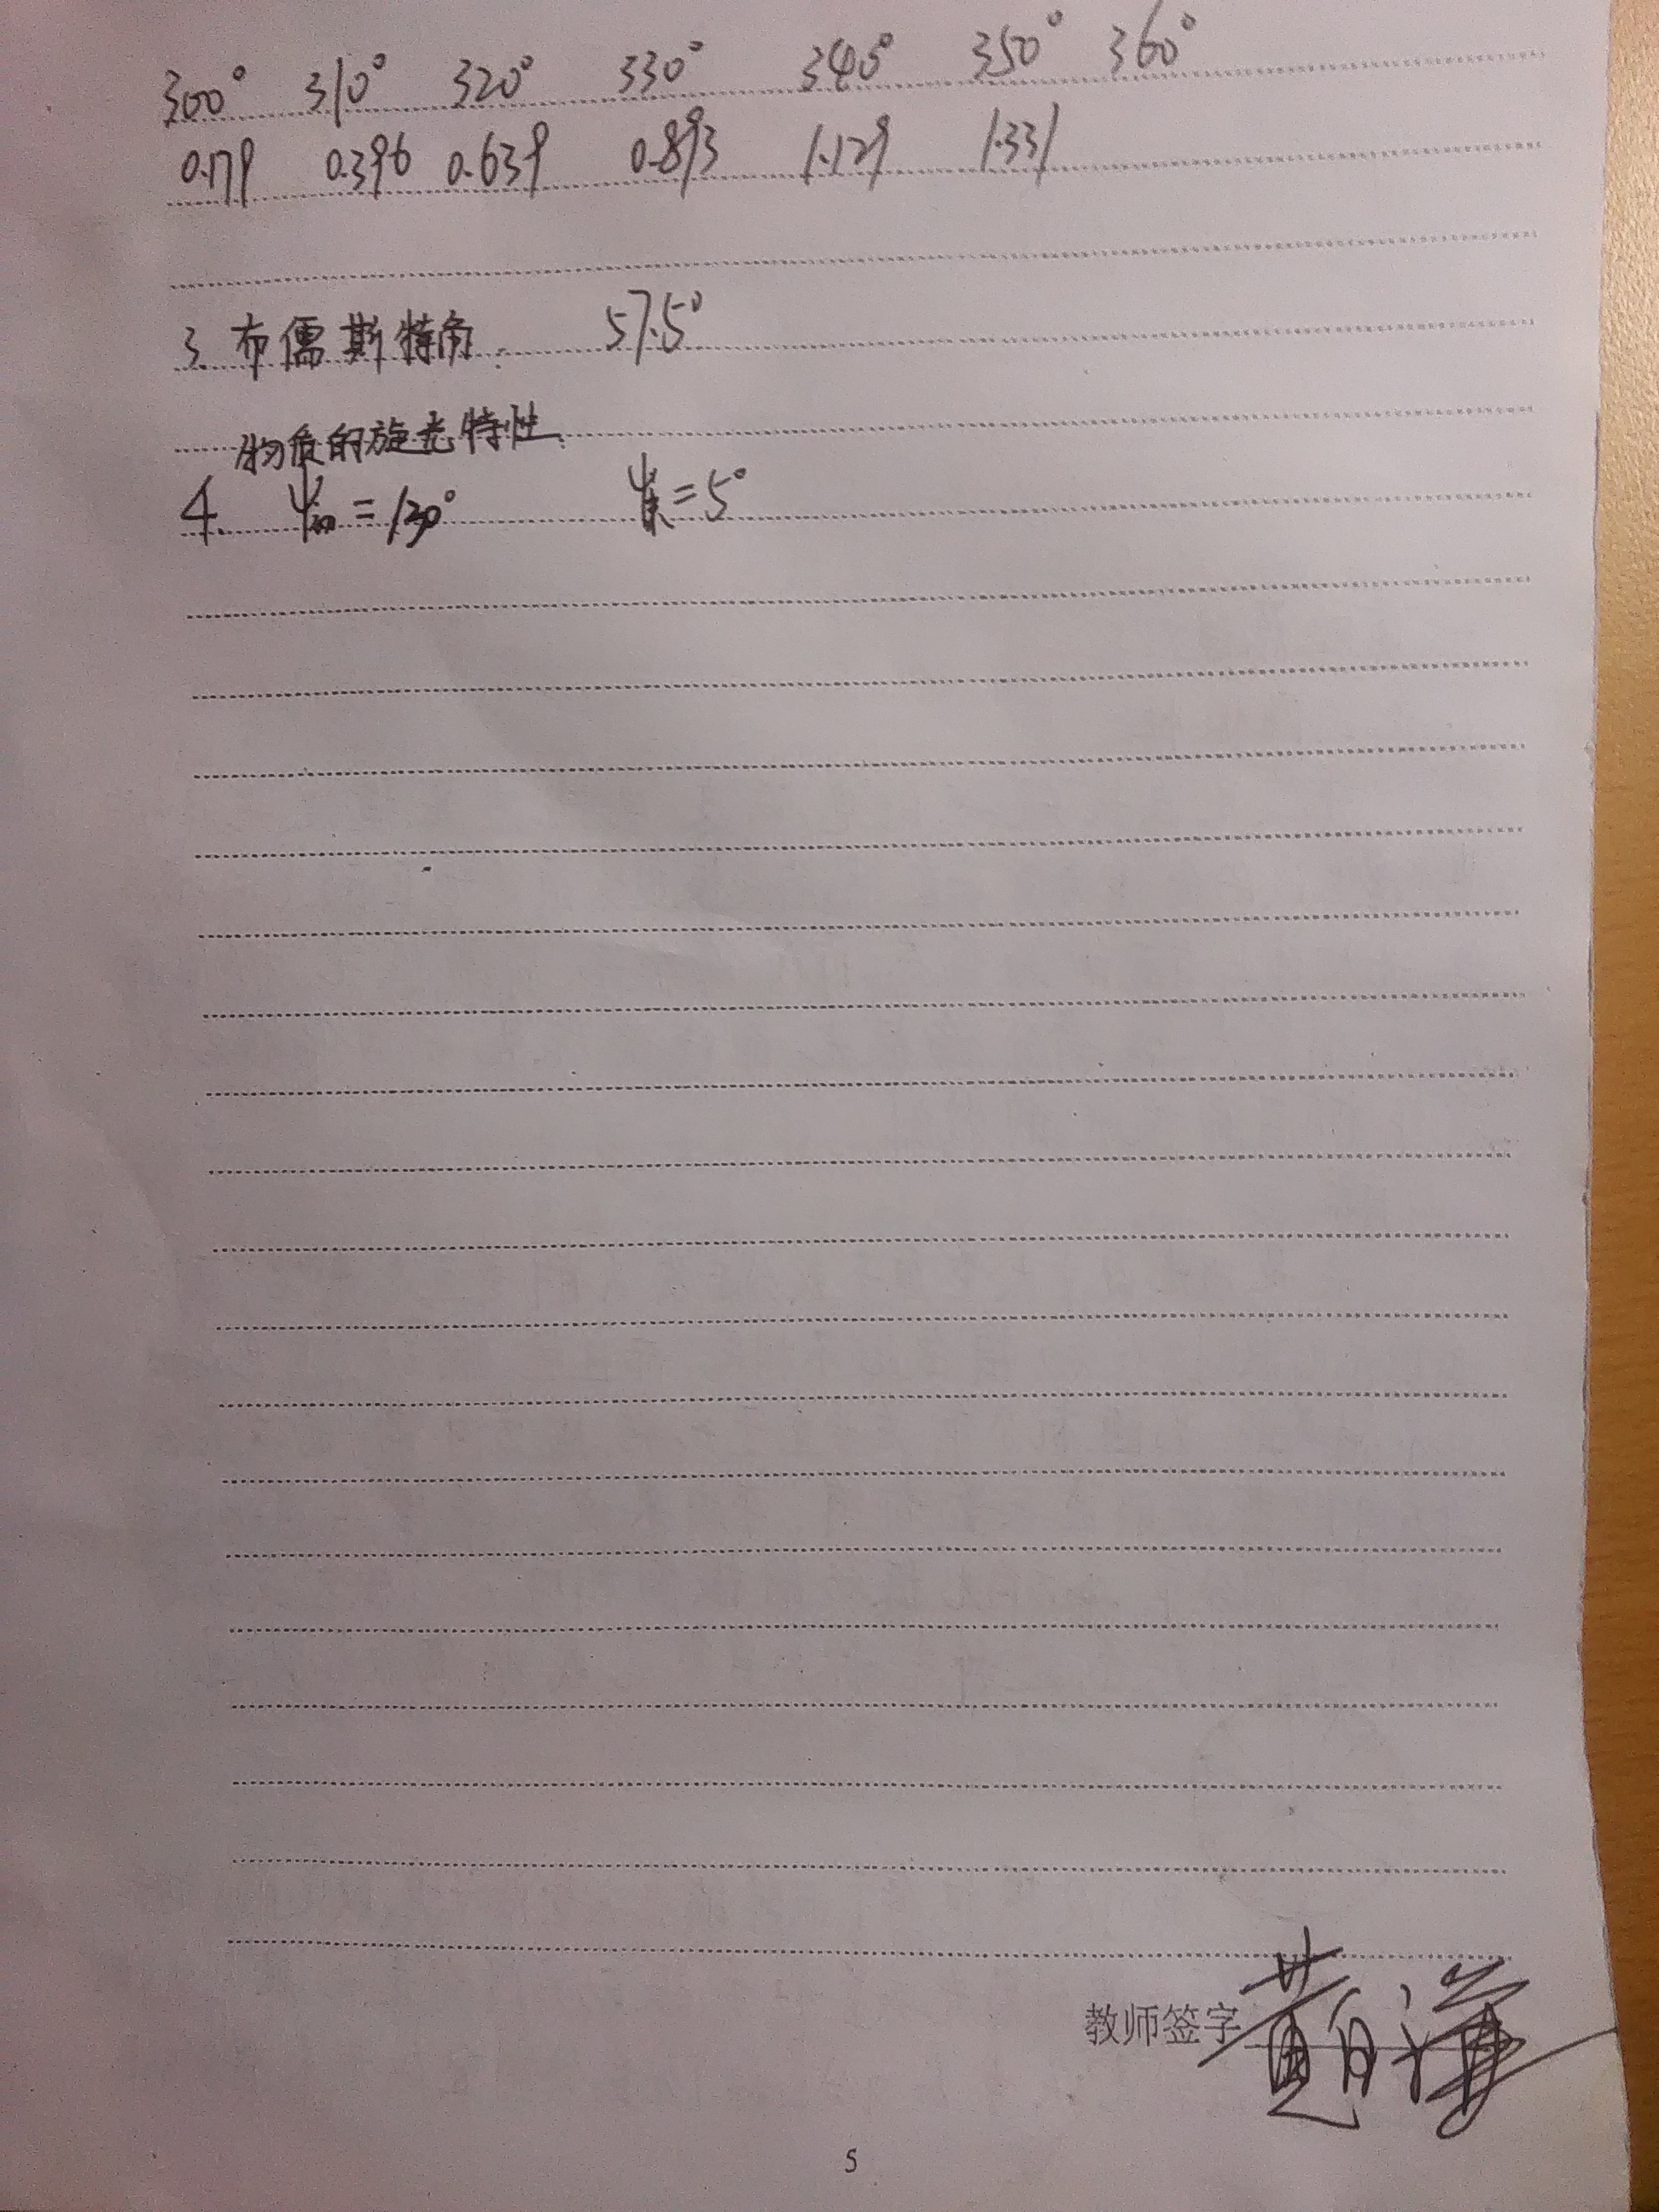 300° 310° 320° 330° 340° 350° 360°
0.179 0.396 0.639 0.893 1.129 1.331
3. 布儒斯特角. 57.5°
物质的旋光特性.
4. ψ = 130° ψ = 5°
教师签字
5